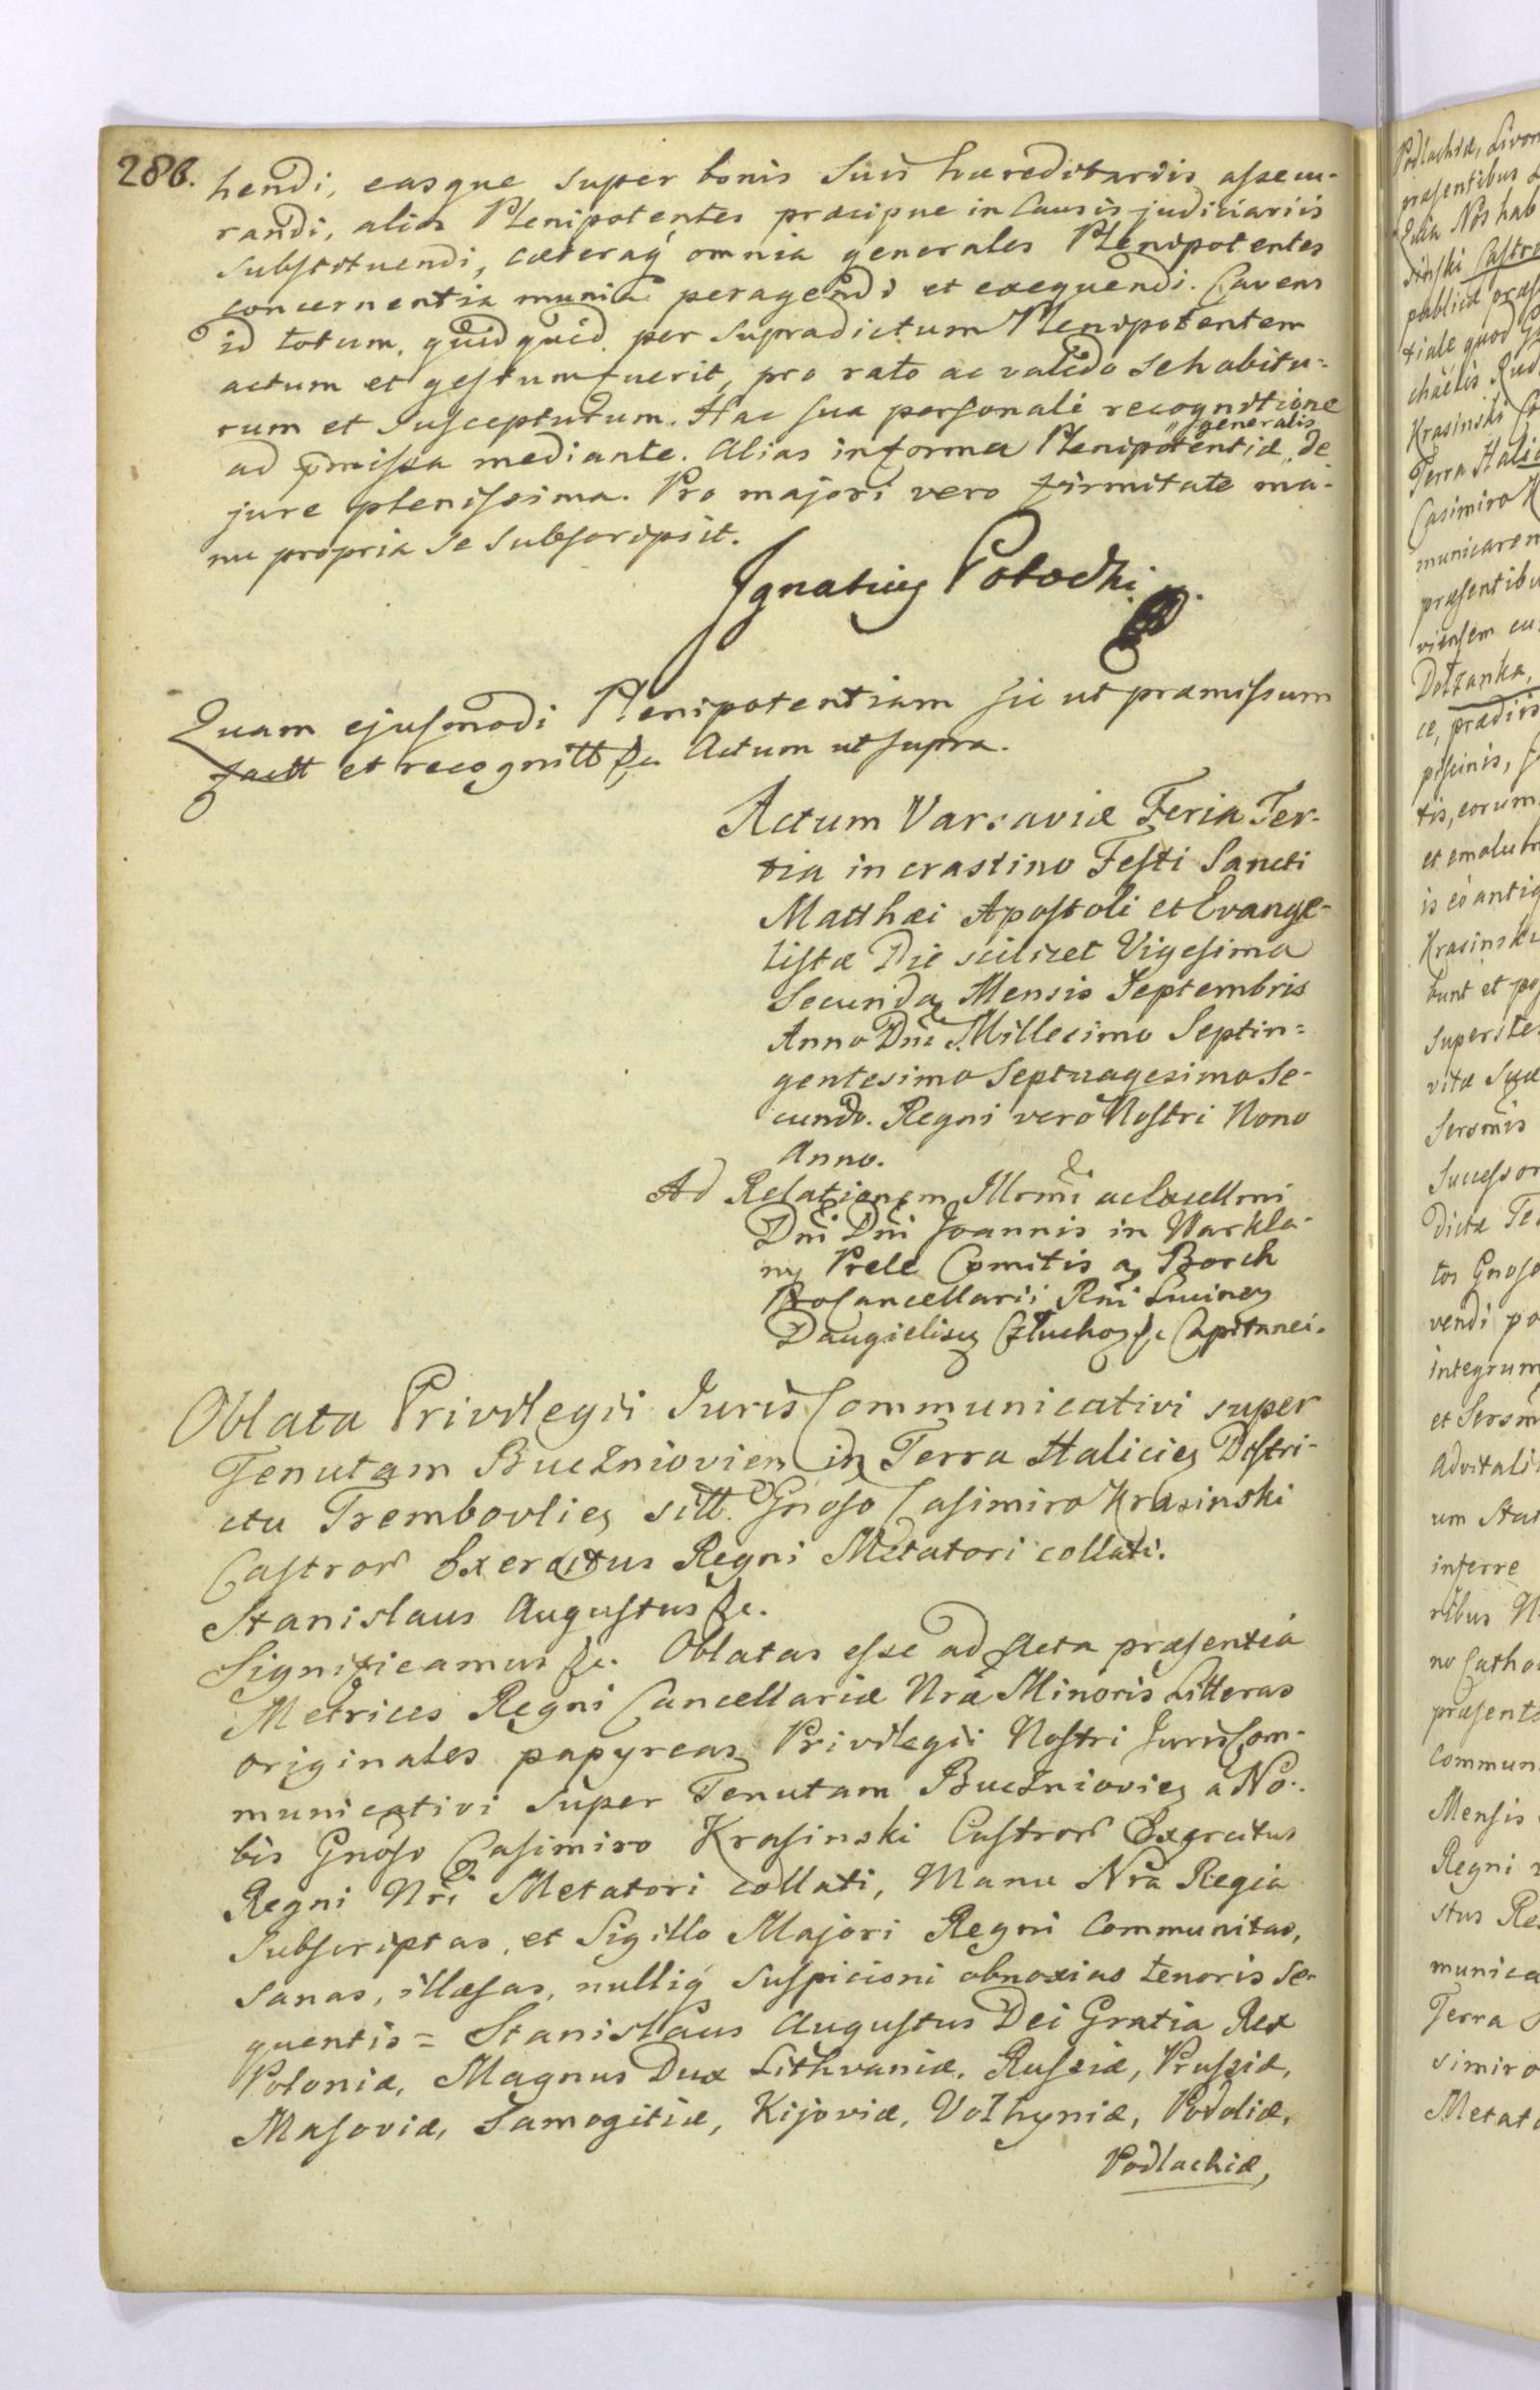 286.
hendi, easque super bonis suis hæreditariis assecu-
randi, alios Plenipotentes præcipue in Causis judiciariis
substituendi, cæteraq́ omnia generales Plenipotentes
concernentia munia peragendi et exequendi. Cavens
id totum, quidquid per supradictum Plenipotentem
actum et gestum fuerit, pro rato ac valido se habitu-
rum et suscepturum. Hac sua personali recognitione
ad pmissa mediante. Alias in forma Plenipotentiæ "generalis" de
jure plenissima. Pro majori vero firmitate ma-
nu propria se subscripsit.
Ignatius Potocki
Quam ejusmodi Plenipotentiam sic ut præmissum
factt et recognitt &c. Actum ut supra.
Actum Varsaviæ Feria Ter-
tia in crastino Festi Sancti
Matthæi Apostoli et Evange-
listæ Die scilicet Vigesima
Secunda Mensis Septembris
Anno Dni Millesimo Septin-
gentesimo Septuagesimo Se-
cundo. Regni vero Nostri Nono
Anno.
Ad Relationem Illmi ac Excellmi
Dni Dni Joannis in Warkla-
ny Prele Comitis a Borch
ProCancellarii Rni Luciney
Daugielisey Człuchoy &c Capitanei.
Oblata Privilegii Juris Communicativi super
Tenutam Buczniovien in Terra Haliciey Distri-
ctu Trembovliey sitt. Gnoso Casimiro Krasinski
Castror Exercitus Regni Metatori collati.
Stanislaus Augustus &c.
Significamus &c. Oblatas esse ad Acta præsentia
Metrices Regni Cancellariæ Nræ Minoris Litteras
originales papyreas Privilegii Nostri Juris Com-
municativi super Tenutam Buczniowiey a No-
bis Gnoso Casimiro Krasinski Castror Exercitus
Regni Nri Metatori collati, Manu Nra Regia
subscriptas, et Sigillo Majori Regni Communitas,
sanas, illæsas, nulliq́ suspicioni obnoxias tenoris se-
quentis = Stanislaus Augustus Dei Gratia Rex
Poloniæ, Magnus Dux Lithvaniæ, Russiæ, Prussiæ,
Masoviæ, Samogitiæ, Kijoviæ, Volhyniæ, Podoliæ,
Podlachiæ,
Podlachiæ, Livon
præsentibus
Quia Nos hab
sinski Castro
publicæ præs
tiale quod
chaelis Rud
Krasinski
Terra Hali
Casimiro K
municaren
præsentibu
viensem cu
Dołzanka,
ce, prædiis
piscinis,
tis, eorum
et emolum
is eo antiq
Krasinsk
bunt et po
superste
vitæ suæ
Sersmis
Successor
dictæ Te
tos Gnoso
vendi po
integrum
et Sersm
advitali
um Stat
inferre
ribus N
no Catho
præsent
commun
Mensis
Regni
stus Re
munica
Terra
simiro
Metat